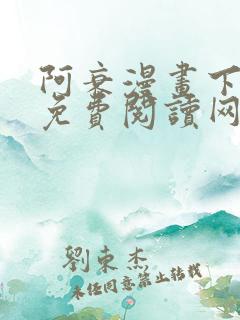 阿衰漫畫下
免費閱讀网
劉東杰
未经同意禁止转载